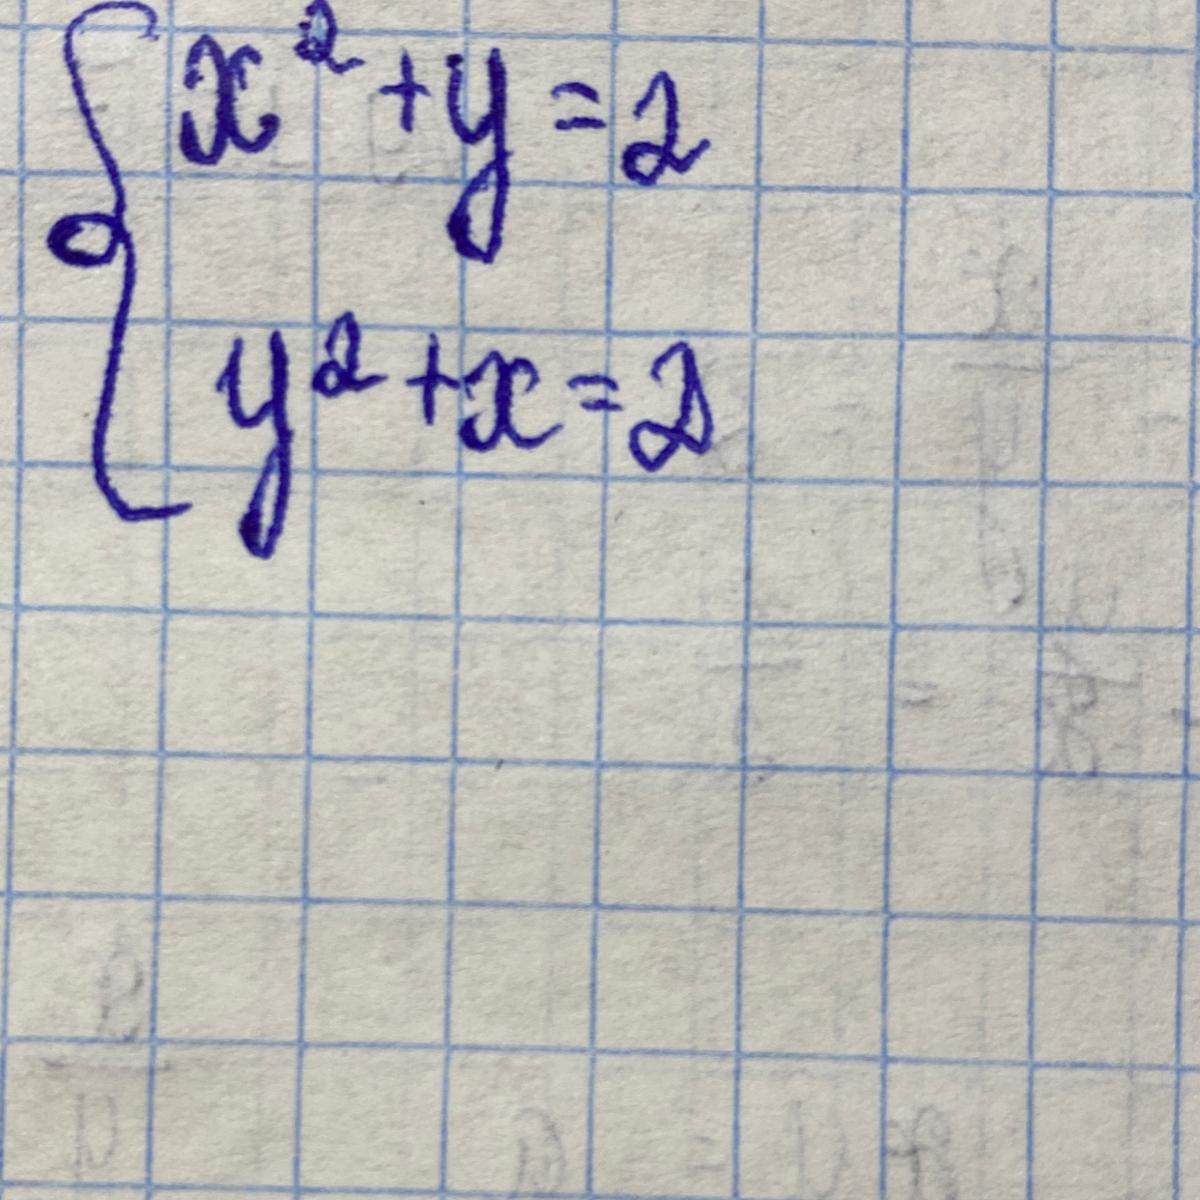 x² + y = 2
y² + x = 2